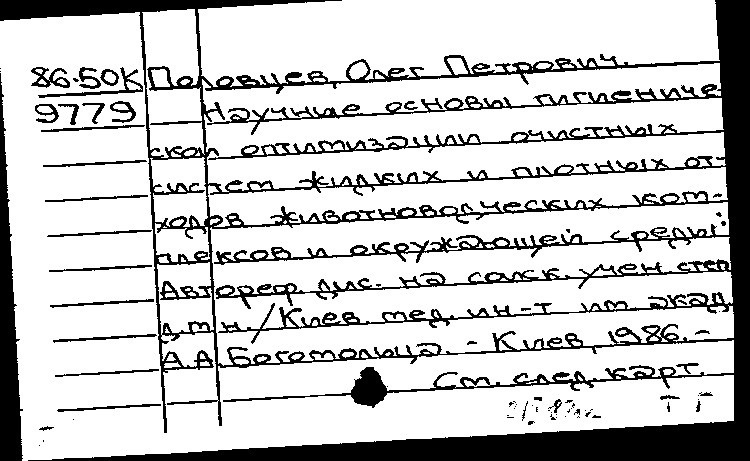 86-50К Половцев, Олег Петрович.
9779 Научные основы гигиениче-
ской оптимизации очистных
систем жидких и плотных от-
ходов животноводческих ком-
плексов и окружающей среды:
Автореф. дис. на соиск. учен. степ.
д.м.н. / Киев. мед. ин-т им. акад.
А.А. Богомольца. - Киев, 1986. -
См. след. карт.
Т Г